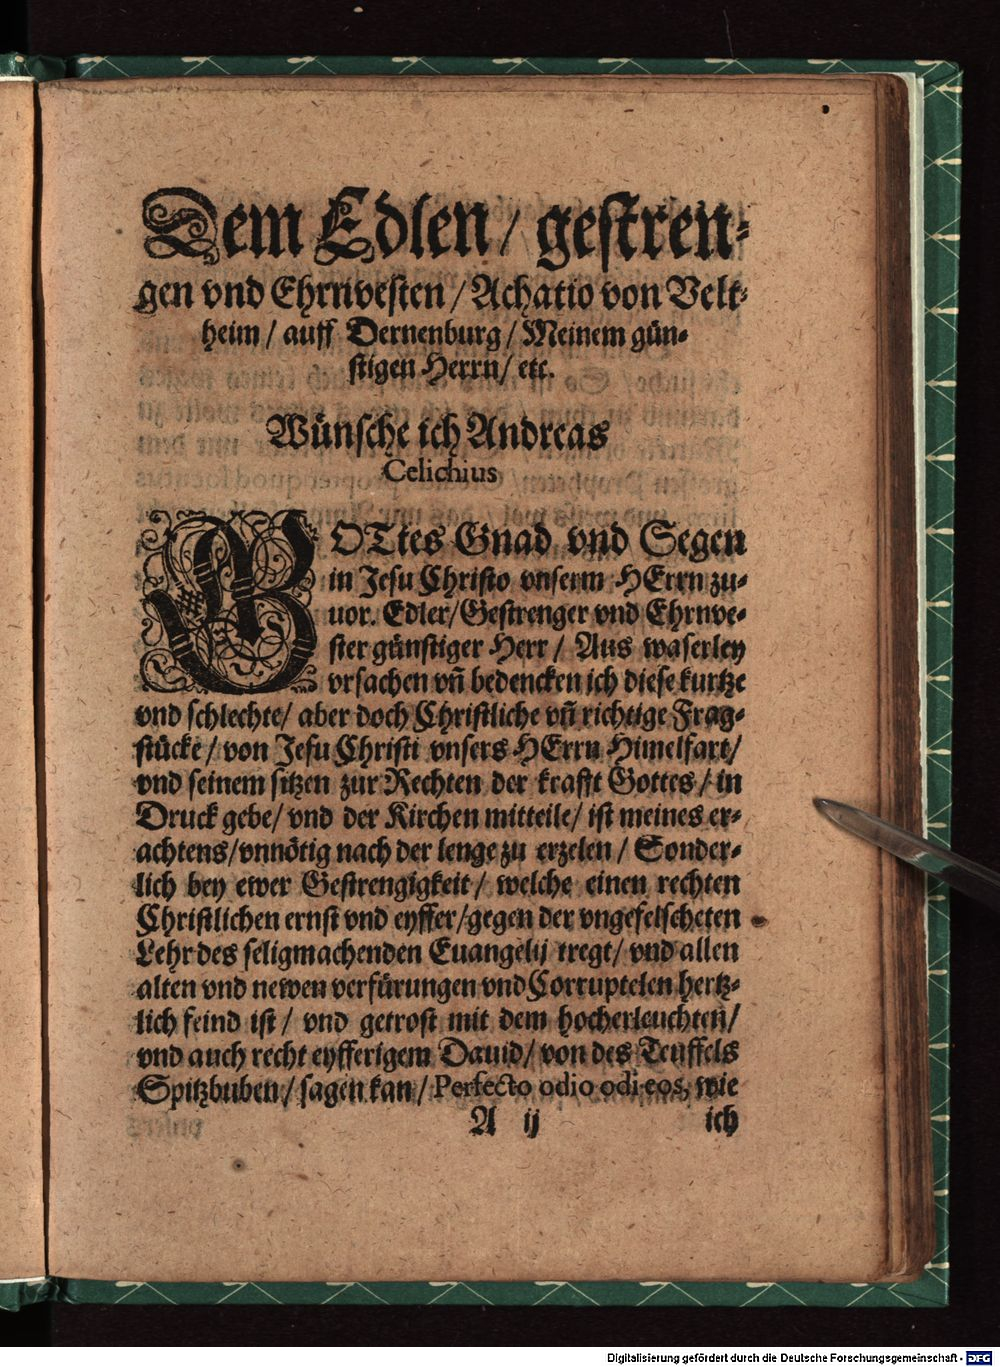 Dem Edlen / gestren-
gen vnd Ehrnvesten / Achatio von Velt-
heim / auff Dernenburg / Meinem gün-
stigen Herrn / etc.
Wünsche ich Andreas
Celichius
GOTtes Gnad vnd Segen
in Jesu Christo vnserm HErrn zu-
uor. Edler / Gestrenger vnd Ehrnve-
ster günstiger Herr / Aus waserley
vrsachen vñ bedencken ich diese kurtze
vnd schlechte / aber doch Christliche vñ richtige Frag-
stücke / von Jesu Christi vnsers HErrn Himelfart /
vnd seinem sitzen zur Rechten der krafft Gottes / in
Druck gebe / vnd der Kirchen mitteile / ist meines er-
achtens / vnnötig nach der lenge zu erzelen / Sonder-
lich bey ewer Gestrengigkeit / welche einen rechten
Christlichen ernst vnd eyffer / gegen der vngefelscheten
Lehr des seligmachenden Euangelij tregt / vnd allen
alten vnd newen verfürungen vnd Corruptelen hertz-
lich feind ist / vnd getrost mit dem hocherleuchten /
vnd auch recht eyfferigem Dauid / von des Teuffels
Spitzbuben / sagen kan / Perfecto odio odi eos, wie
A ij ich
Digitalisierung gefördert durch die Deutsche Forschungsgemeinschaft - DFG